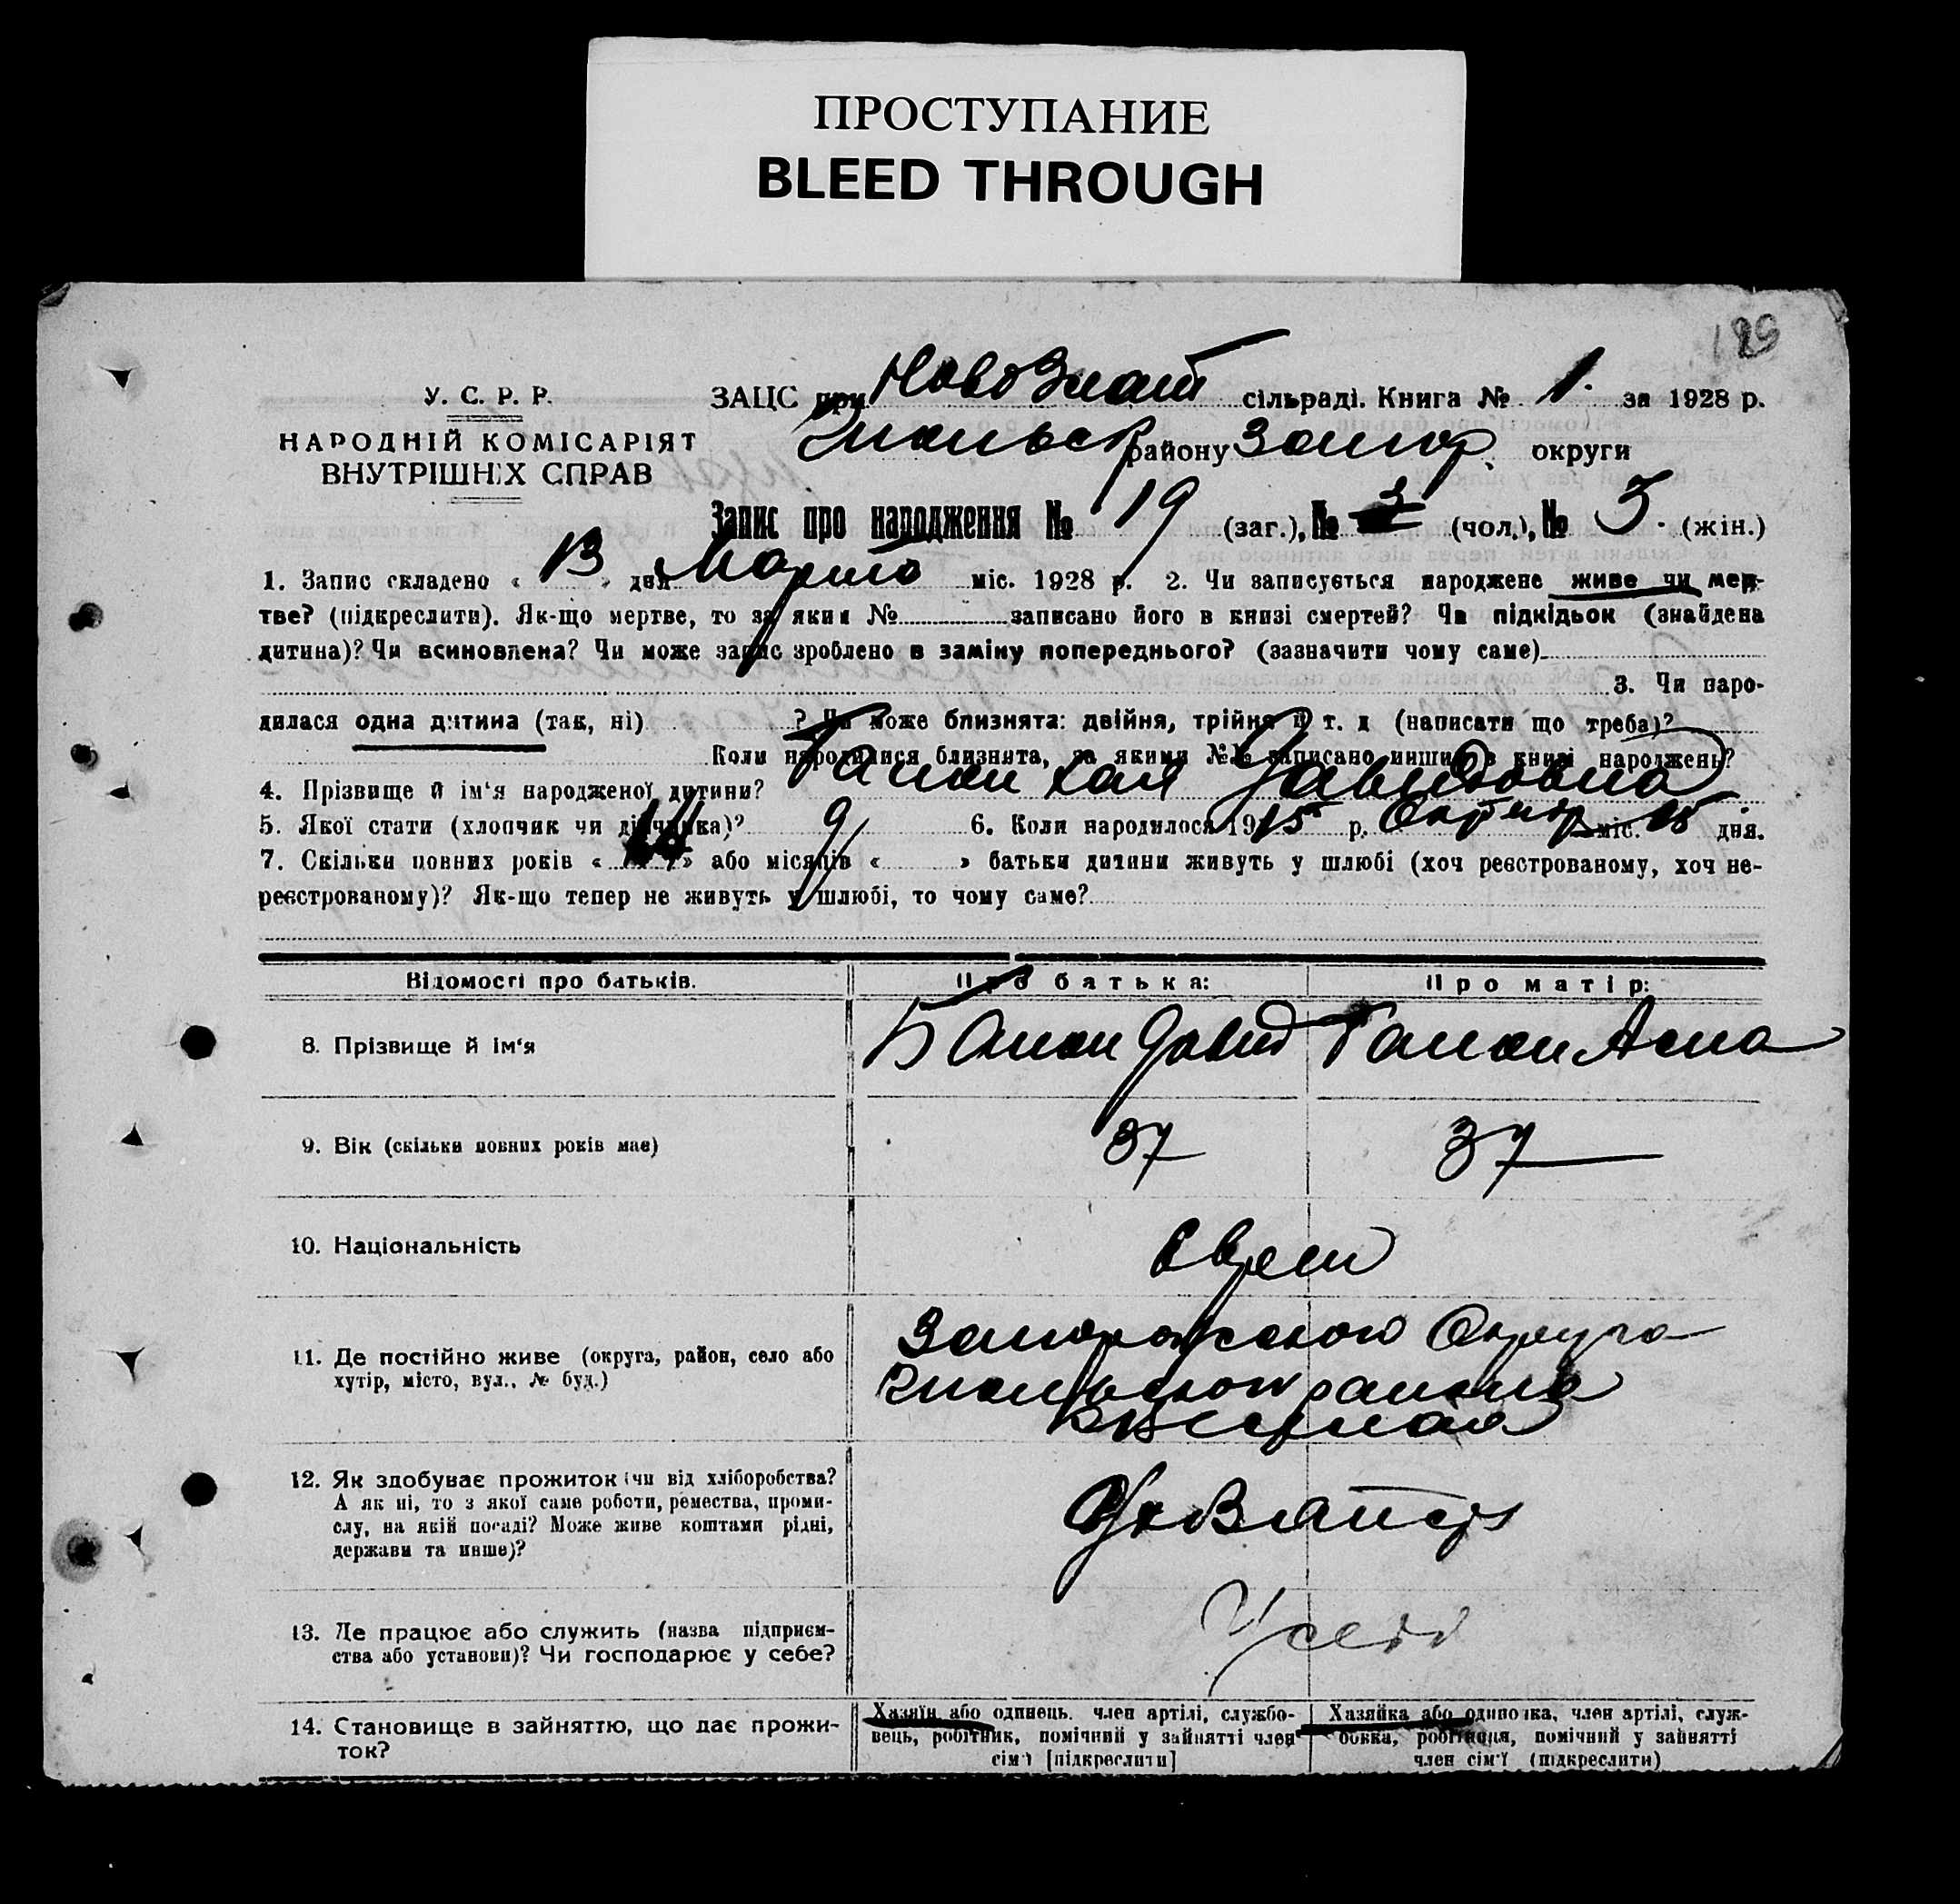 ПРОСТУПАНИЕ
BLEED THROUGH
У. С. Р. Р.
НАРОДНІЙ КОМІСАРІЯТ
ВНУТРІШНІХ СПРАВ
ЗАЦС при НовоЗлат сільраді. Книга № 1. за 1928 р.
району Запор. округи
Запис про народження № 19 (заг.), № (чол.), № 3. (жін.)
1. Запис складено « 13 » дня Марта міс. 1928 р. 2. Чи записується народжене живе чи мер-
тве? (підкреслити). Як-що мертве, то за яким № записано його в книзі смертей? Чи підкідьок (знайдена
дитина)? Чи всиновлена? Чи може запис зроблено в заміну попереднього? (зазначити чому саме)
3. Чи наро-
дилася одна дитина (так, ні) ? Чи може близнята: двійня, трійня й т. д (написати що треба)?
Коли народилися близнята, за якими №№ записано инших в книзі народжень?
4. Прізвище й ім'я народженої дитини? Хая Давидовна
5. Якої стати (хлопчик чи дівчинка)? 6. Коли народилося 1915 р. Октяб міс. 15 дня.
7. Скільки повних років « » або місяців « » батьки дитини живуть у шлюбі (хоч реєстрованому, хоч не-
реєстрованому)? Як-що тепер не живуть у шлюбі, то чому саме?
Відомості про батьків. Про батька: Про матір:
8. Прізвище й ім'я Давид
9. Вік (скільки повних років має) 37 37
10. Національність Евреи
11. Де постійно живе (округа, район, село або
хутір, місто, вул., № буд.)
Запорожского Округа
района
12. Як здобуває прожиток (чи від хліборобства?
А як ні, то з якої саме роботи, ремества, проми-
слу, на якій посаді? Може живе коштами рідні,
держави та инше)?
13. Де працює або служить (назва підприєм-
ства або установи)? Чи господарює у себе?
У себя
14. Становище в зайняттю, що дає прожи-
ток?
Хазяїн або одинець, член артілі, службо-
вець, робітник, помічний у зайнятті член
сім'ї [підкреслити]
Хазяйка або одиночка, член артілі, служ-
бовка, робітниця, помічний у зайнятті
член сім'ї (підкреслити)